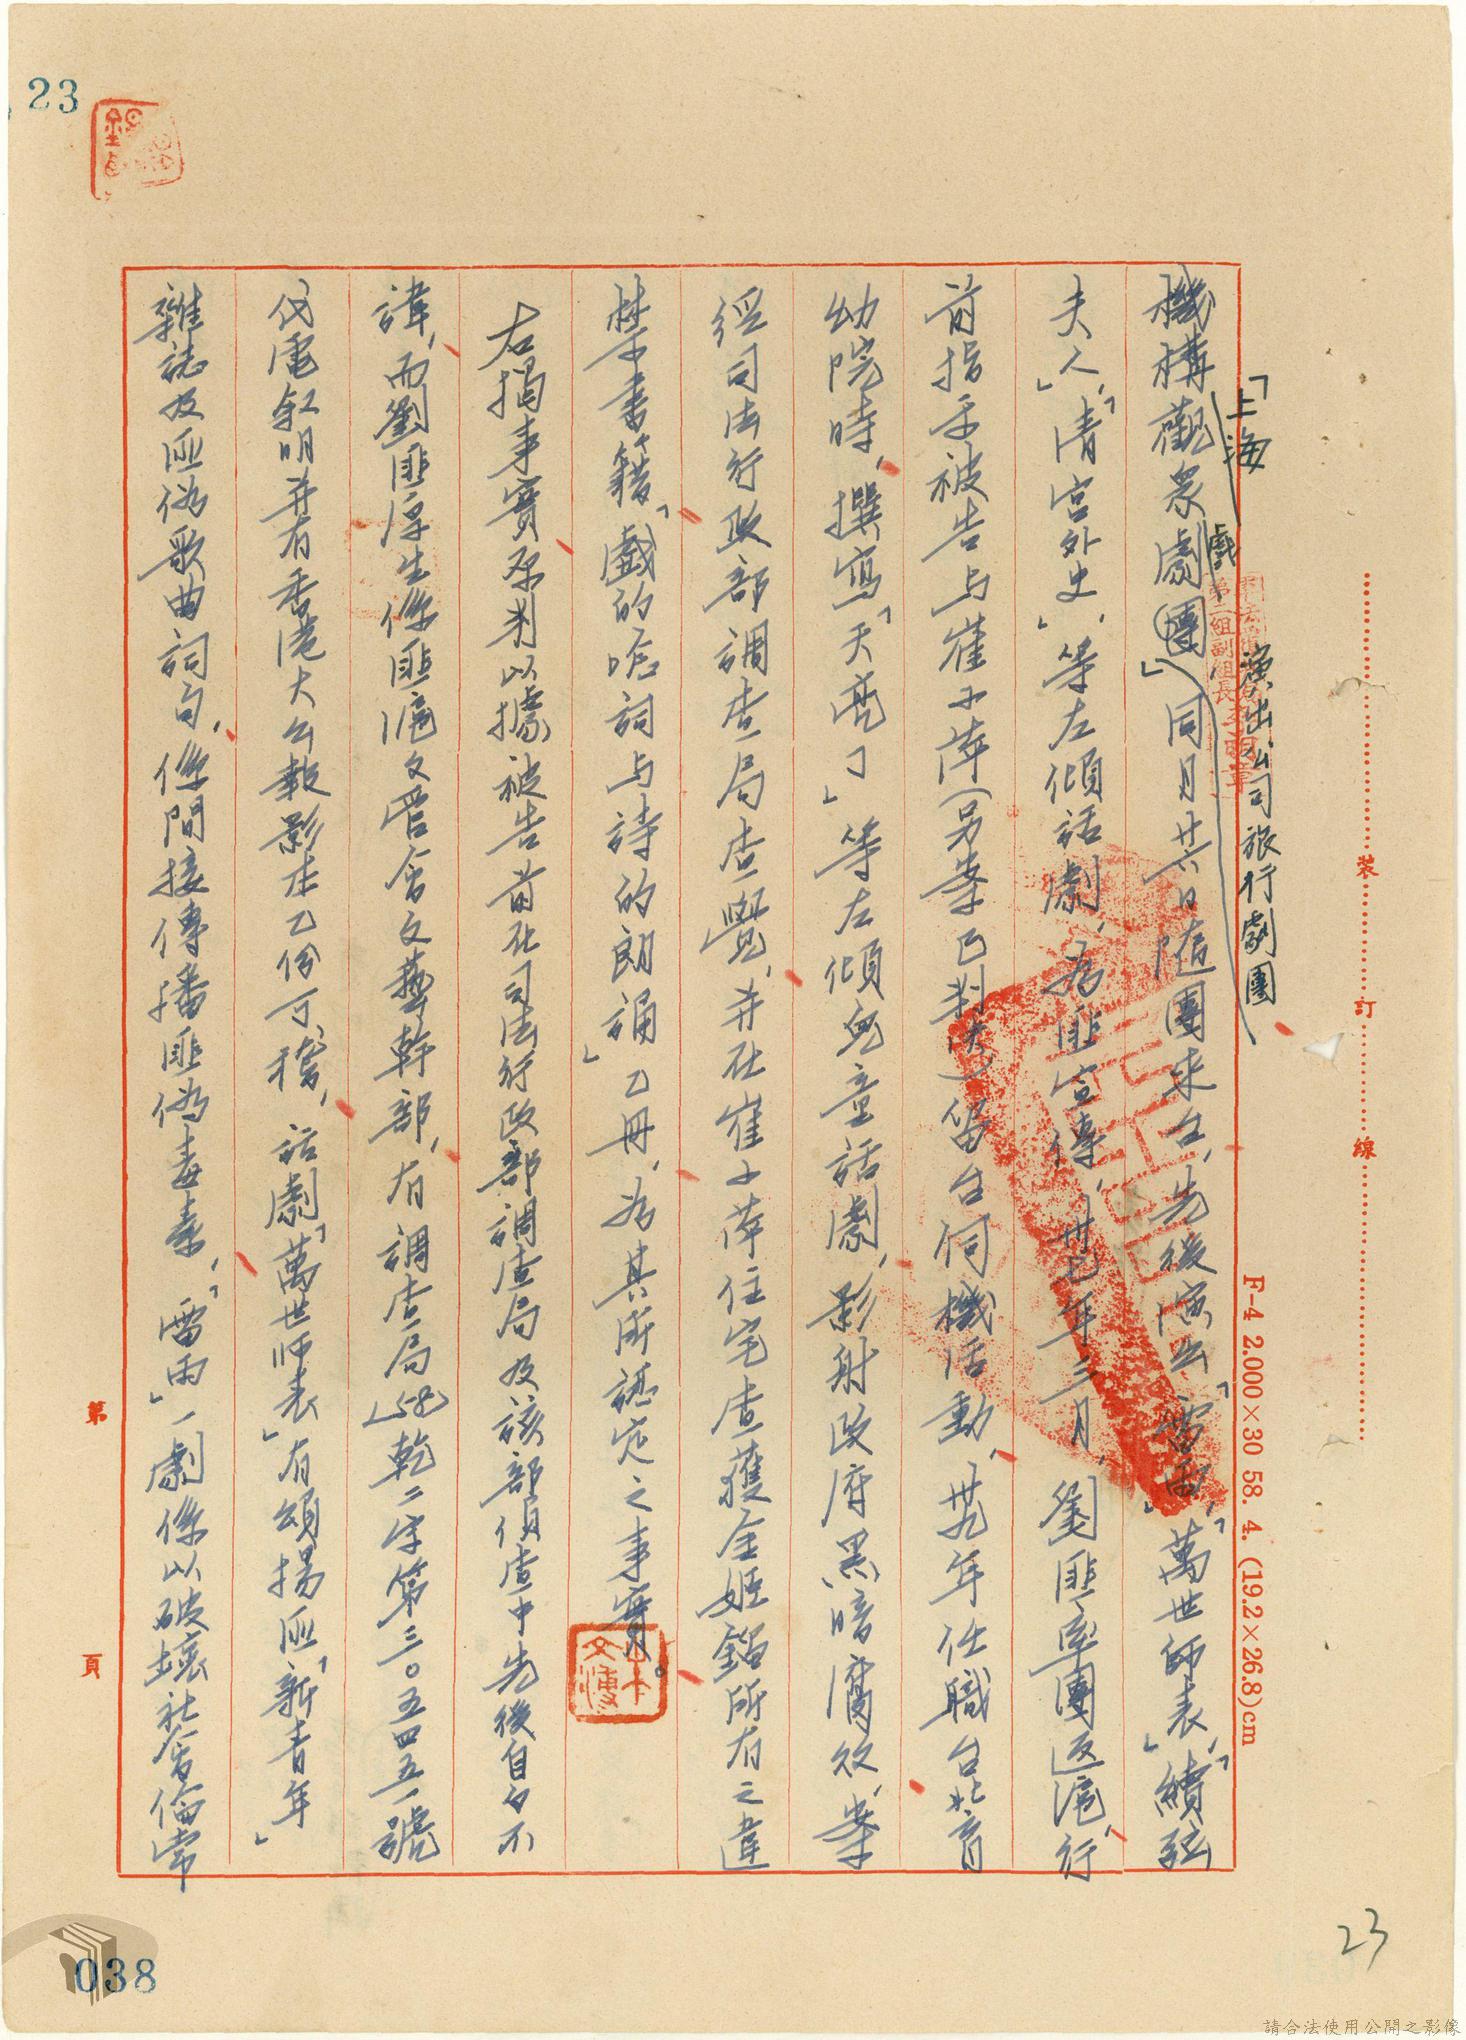 23
「上海
戲
演出公司旅行劇團
機構觀眾劇團」同月廿六日隨團來台，先後演出「雷雨」，「萬世師表」，「續弦
夫人」，「清宮外史」，等左傾話劇，為匪宣傳，卅七年三月，劉匪率團返滬，行
前指示被告与崔小萍（另案已判決）留台伺機活動，卅九年任職台北育
幼院時，撰寫「天亮了」等左傾兒童話劇，影射政府黑暗腐敗，案
經司法行政部調查局查覺，并在崔小萍住宅查獲金姬鎦所有之違
禁書籍「戲的唸詞与詩的朗誦」乙冊，為其所認定之事實。
右揭事實原判以據被告前在司法行政部調查局及該部偵查中先後自白不
諱，而劉匪厚生係匪滬文管會文藝幹部，有調查局(58)乾二字第三〇五四五一號
代電敘明并有香港大公報影本乙份可稽，話劇「萬世師表」有頌揚匪「新青年」
雜誌及匪偽歌曲詞句，係間接傳播匪偽毒素，「雷雨」一劇係以破壞社會倫常
裝
訂
線
F-4 2.000×30 58. 4. (19.2×26.8)cm
第
頁
23
038
請合法使用公開之影像